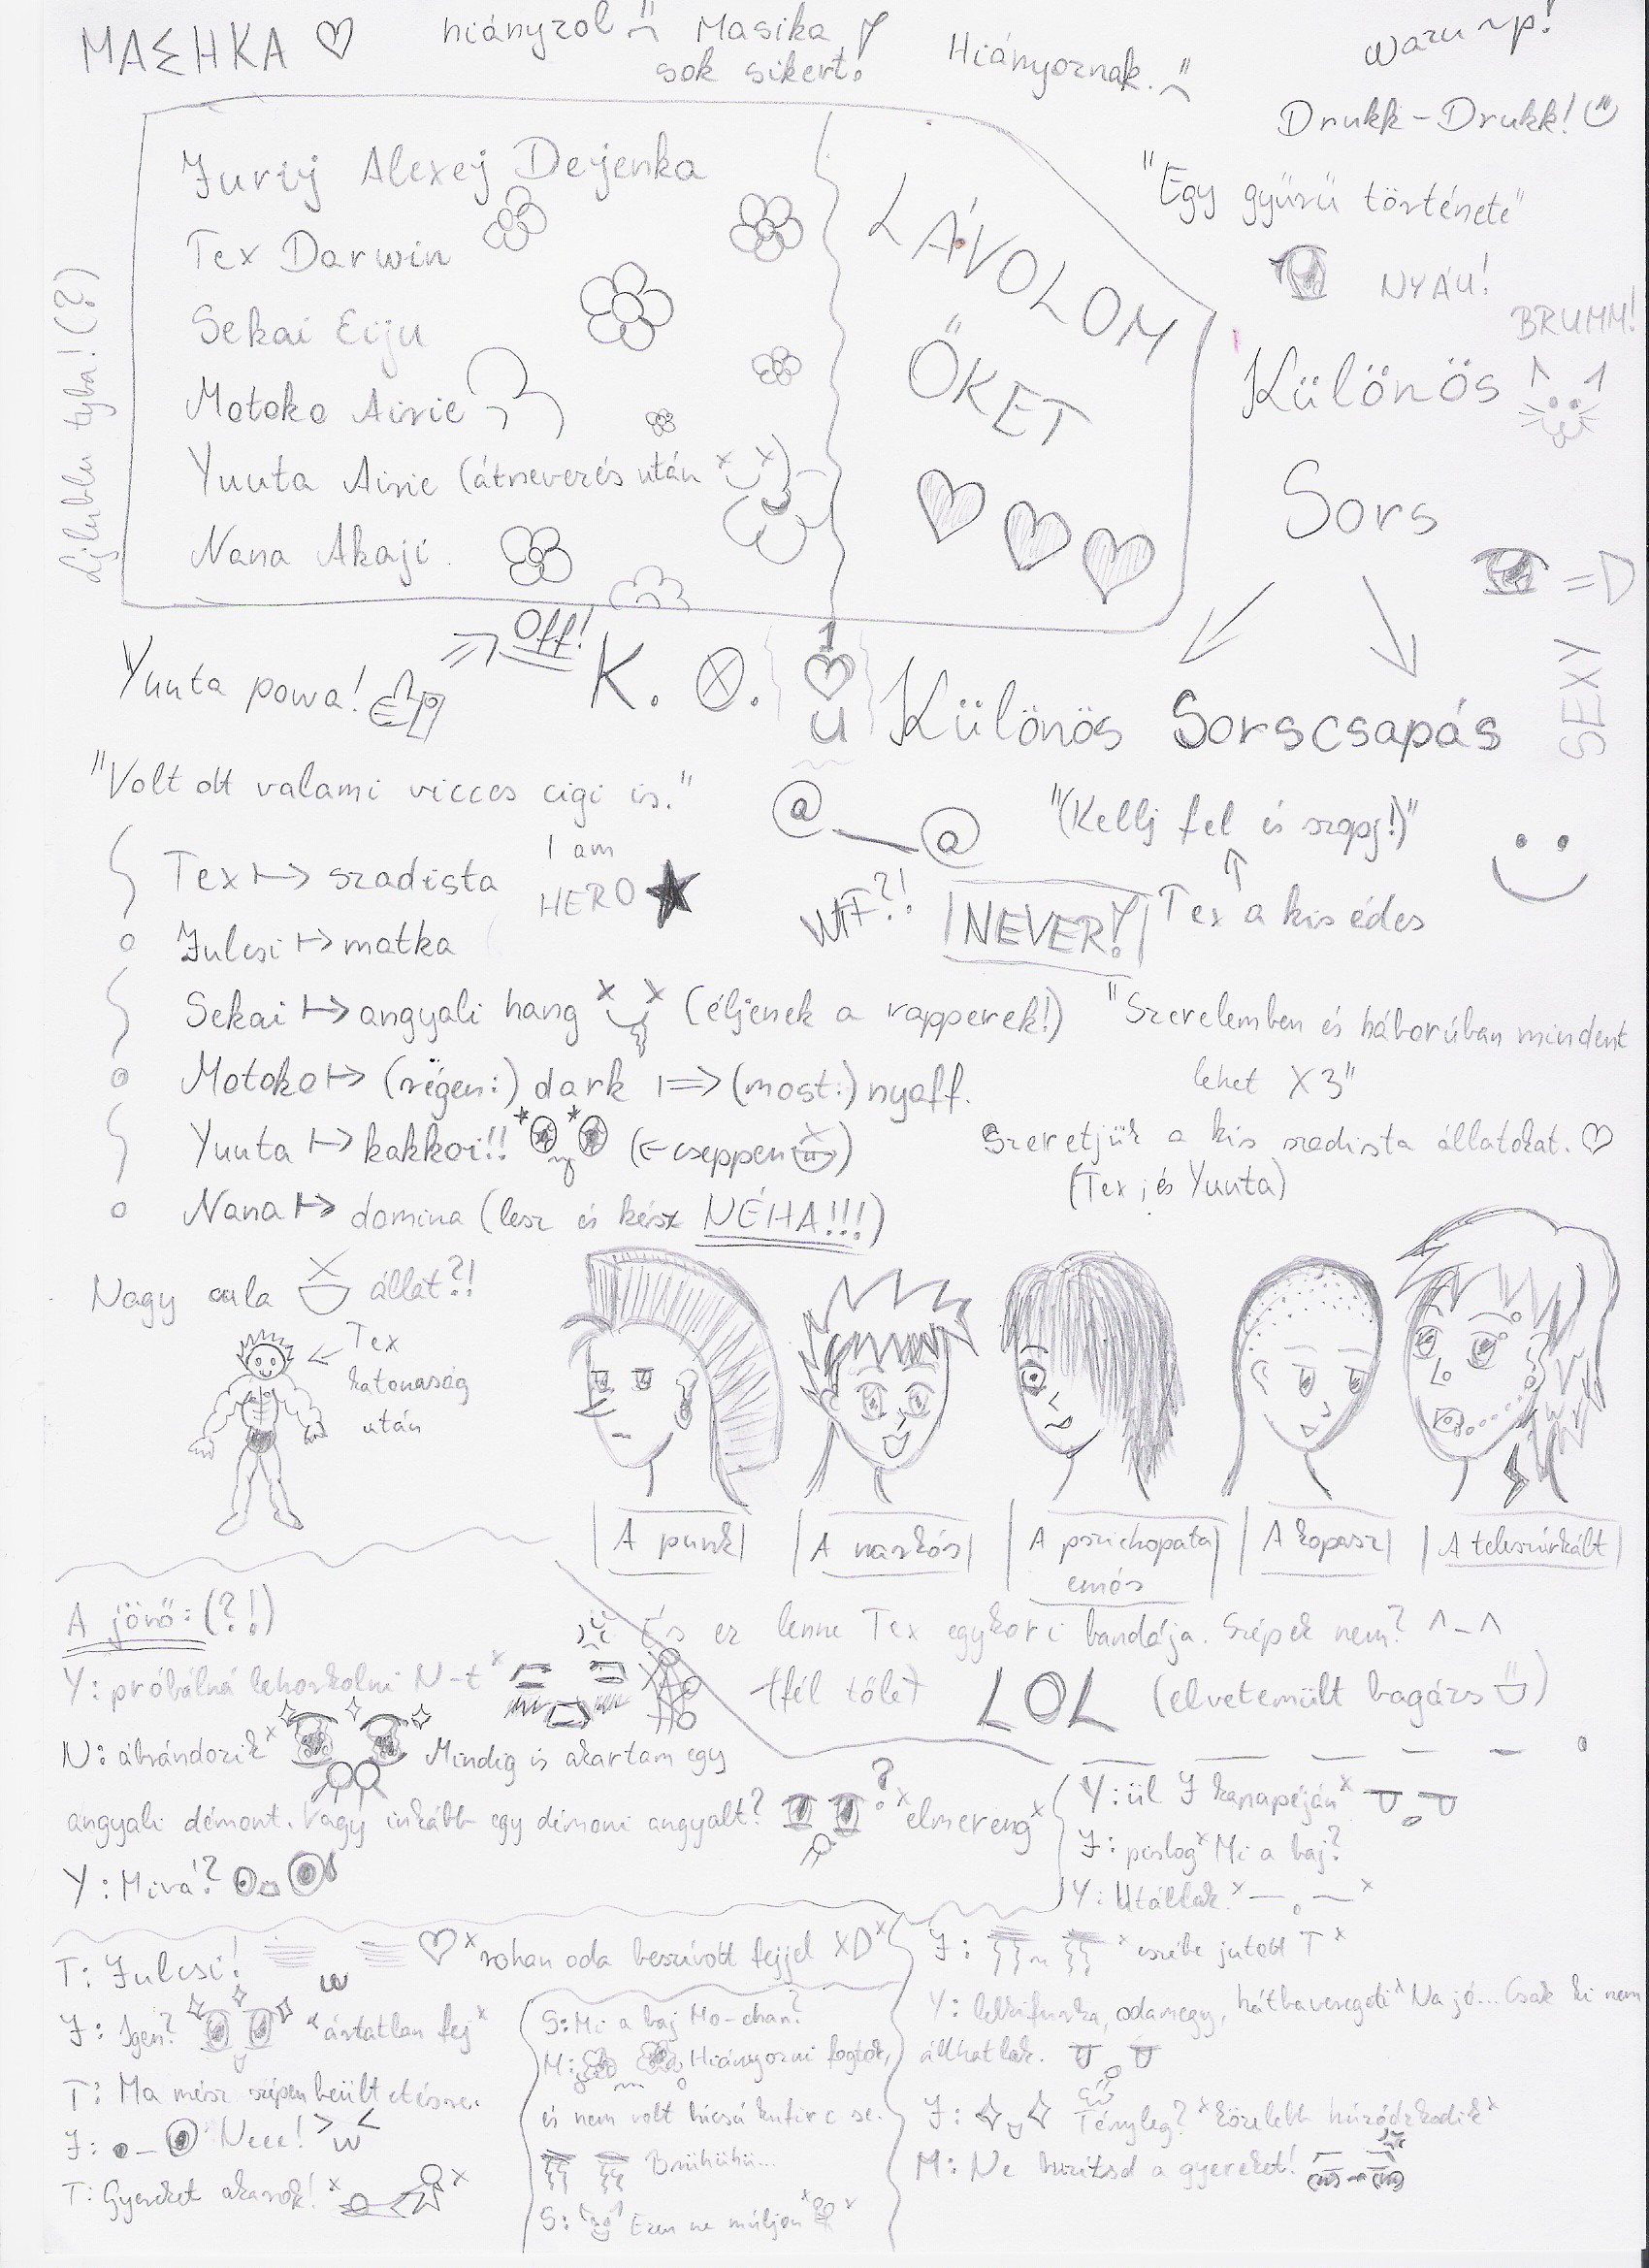 ΜΑΣΗΚΑ ♡
hiányzol
Masika
sok sikert!
Hiányoznak.
Drukk-Drukk!
"Egy gyűrű története"
NYÁU!
BRUMM!
Különös
Sors
=D
SEXY
Jurij Alexej Dejenka
Tex Darwin
Sekai Eiju
Motoko Airie
Yuuta Airie (átnevezés után
Nana Akaji
LÁVOLOM
ŐKET
Off!
Yuuta powa!
K. O.
1
♡
u
Különös Sorscsapás
"Volt ott valami vicces cigi is."
@_@
"(Kellj fel és szopj!)"
Tex a kis édes
WTF?!
NEVER!
I am
HERO
Tex ↦ szadista
Julcsi ↦ matka
Sekai ↦ angyali hang (éljenek a rapperek!)
Motoko ↦ (régen:) dark ⟹ (most:) nyaff.
Yuuta ↦ kakkoi!! (← cseppen
Nana ↦ domina (lesz és kész NÉHA!!!)
"Szerelemben és háborúban mindent
lehet X3"
Szeretjük a kis szadista állatokat. ♡
(Tex és Yuuta)
Nagy cula állat?!
← Tex
katonaság
után
A punk
A narkós
A pszichopata
emós
A kopasz
A teleszúrkált
És ez lenne Tex egykori bandája. Szépek nem? ^_^
(fél tőle)
LOL (elvetemült bagázs
A jövő: (?!)
Y: próbálná lehordani N-t
N: ábrándozik* Mindig is akartam egy
angyali démont. Vagy inkább egy démoni angyalt? *elmereng*
Y: Mivá?
Y: ül J kanapéján*
J: pislog* Mi a baj?
Y: Utállak.
J: *eszébe jutott T*
Y: lelkifurka, odamegy, hátbaveregeti* Na jó... Csak ki nem
állhatlak.
J: Tényleg? *közelebb húzódzkodik*
M: Ne hurítsd a gyereket!
T: Julcsi! ♡ *rohan oda beszívott fejjel XD*
J: Igen? *ártatlan fej*
T: Ma mész szépen beültetésre.
J: Neee! >w<
T: Gyereket akarok!
S: Mi a baj Mo-chan?
M: Hiányozni fogtok,
és nem volt búcsú kufirc se.
Brühühü...
S: Ezen ne múljon